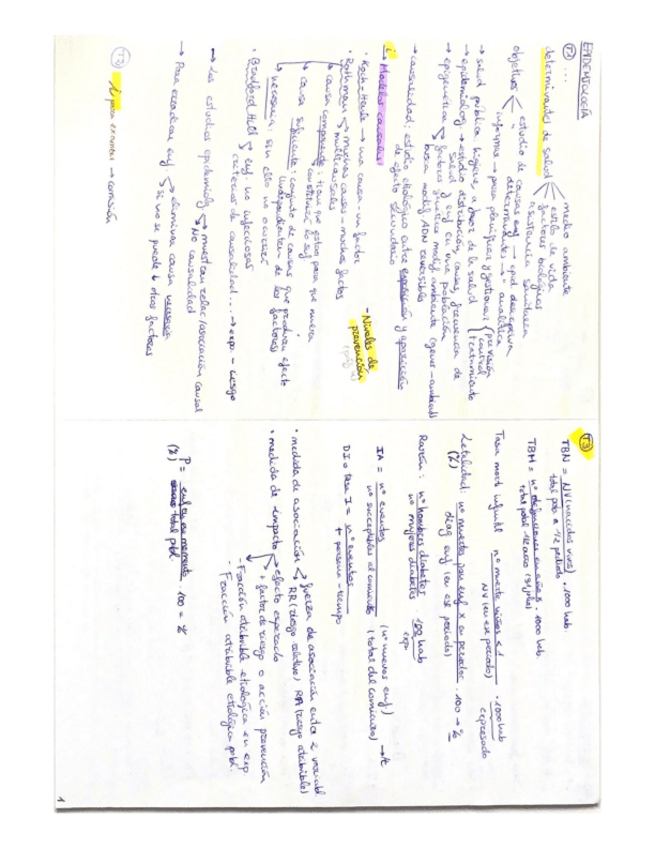 EPIDEMIOLOGÍA
T2 ...
determinantes de salud
medio ambiente
estilo de vida
factores biológicos
sistema sanitaria
objetivos
estudio de causas enf → epid descriptiva
" determinantes → " analítica
informar → para planificar y gestionar
previsión
control
tratamiento
→ salud pública higiene, a favor de la salud
→ epidemiolog → estudio distribución, causas, frecuencia de
salud y enf en una población
→ epigenética
factores género modif ambiente (genes-ambient)
busca modif ADN reversibles
→ causalidad: estudio etiológico entre exposición y aparición
de efecto secundario
Modelos causales
· Koch-Henle → una causa-un factor
· Rothman
muchas causas-muchos factos
multicausales
causa componente: tiene que estar para que
constituir la suf
causa suficiente: conjunto de causas que producen efecto
(independientem de los factores)
necesaria: sin ello no ocurren
· Bradford Hill
enf no infecciosas
criterios de causalidad ... → exp - riesgo
- Niveles de
prevención
→ Los estudios epidemiolg
muestran relac/asociación causal
No causalidad
→ Para erradicar enf.
eliminar causa necesaria
si no se puede + otros factores
T3
T3
TBN = NV (nacidos vivos) . 1000 hab.
total pob a 1/2 periodo
TBM = nº defunciones en años . 1000 hab.
total pobl 1/2 año (31 julio)
Tasa mort infantil nº muerte niños < 1 . 1000 hab
NV (en ese periodo) expresado
Letalidad: nº muerto por enf x en periodo . 100 → %
(%) diag enf (en ese periodo)
Razón: nº hombres diabetes 100 hab
nº mujeres diabetes exp
IA = nº eventos (nº nuevos enf)
nº susceptibles al comienzo (total del comienzo) → t
DI o tasa I = nº eventos
t persona-tiempo
· medida de asociación
fuerza de asociación entre 2 variabl
RR (riesgo relativo) RA (riesgo atribible)
· medida de impacto
efecto esperado
+ factor de riesgo o acción prevención
- Fracción atribible etiológica en exp
- Fracción atribuible etiológica pobl.
P = enf en un momento 100 = %
(%) total pobl.
1